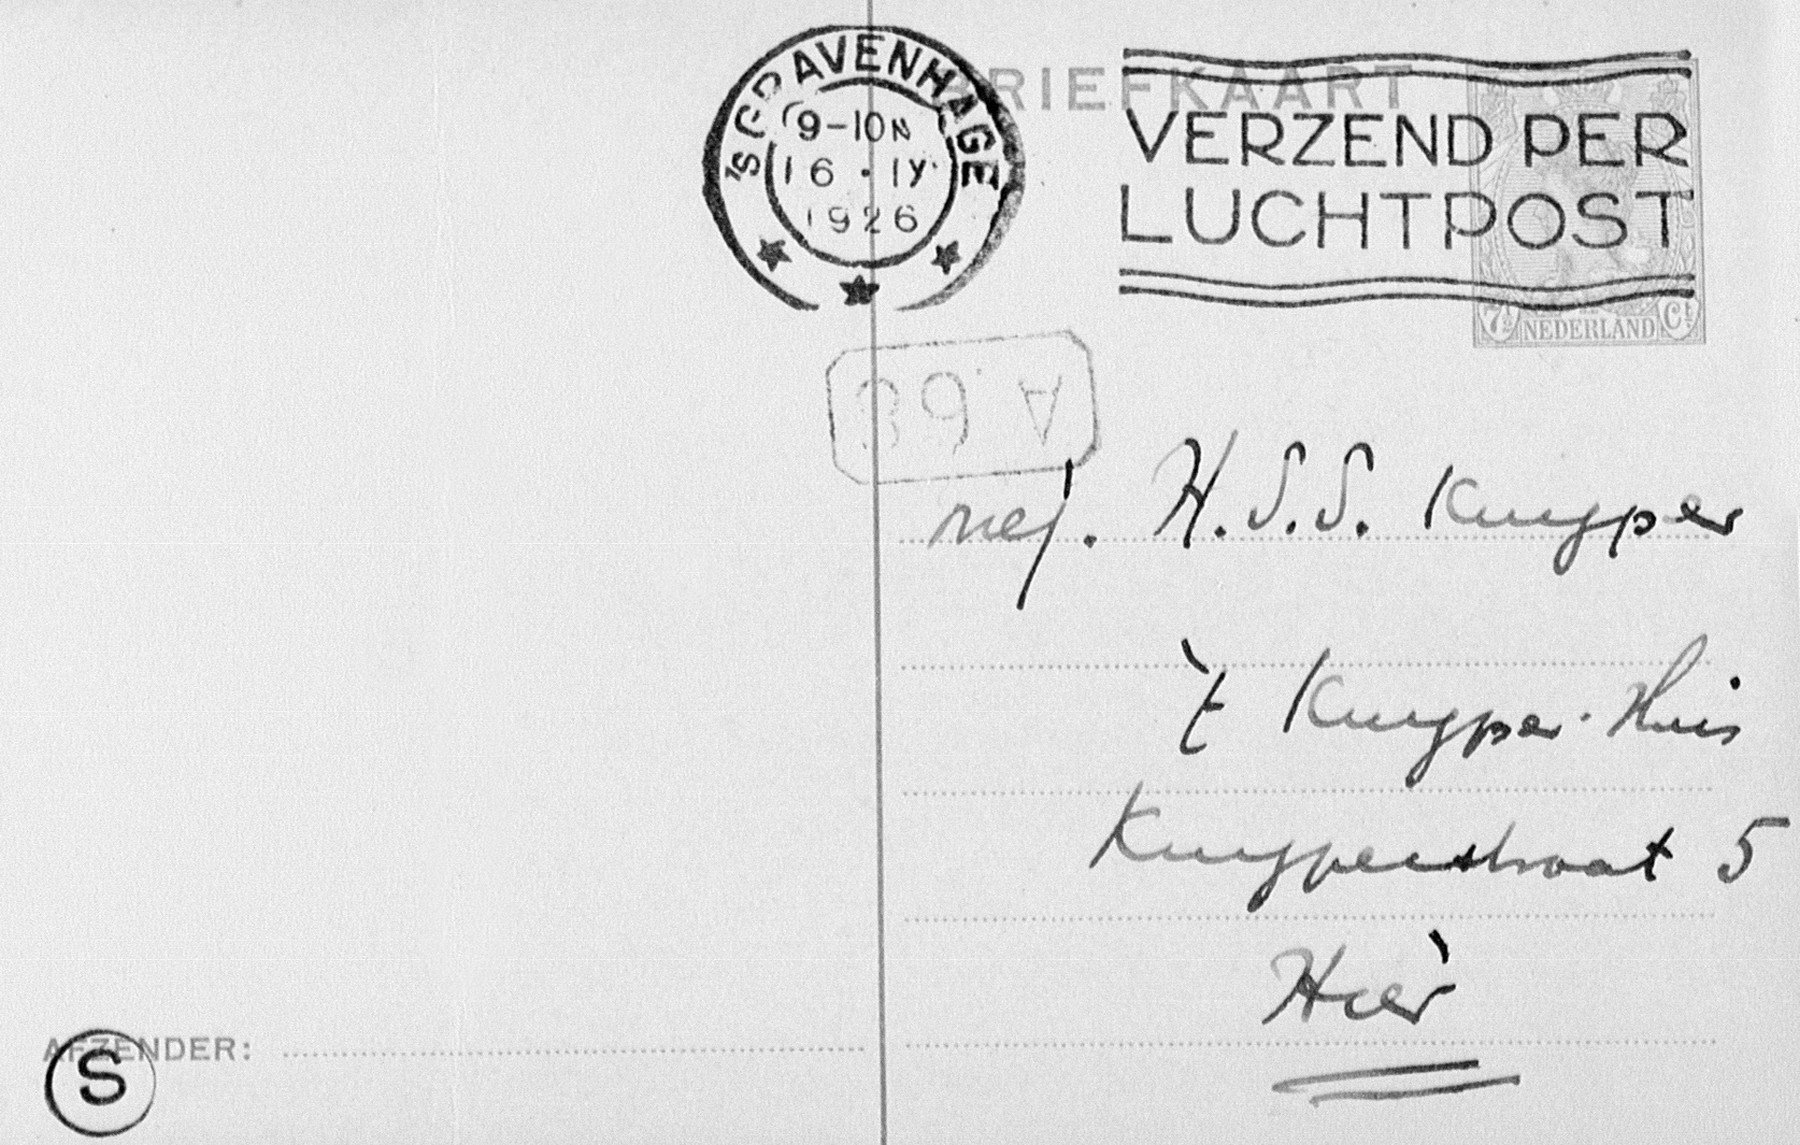 'sGRAVENHAGE
9-10N
16.IV.
1926
BRIEFKAART
VERZEND PER
LUCHTPOST
7½ NEDERLAND Ct
A.68
mej. H.S.S. Kuyper
't Kuyper-Huis
Kuyperstraat 5
Hier
AFZENDER:
S